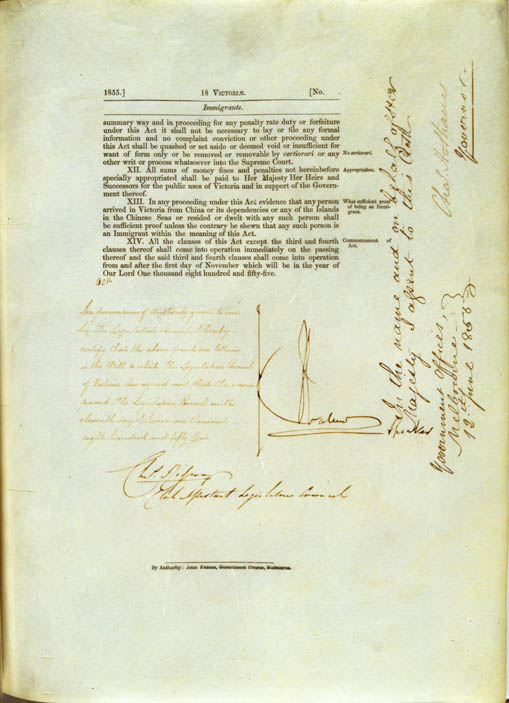 1855.] 18 VICTORIÆ. [No.
Immigrants.
summary way and in proceeding for any penalty rate duty or forfeiture
under this Act it shall not be necessary to lay or file any formal
information and no complaint conviction or other proceeding under
this Act shall be quashed or set aside or deemed void or insufficient for
want of form only or be removed or removable by certiorari or any
other writ or process whatsoever into the Supreme Court.
No certiorari.
XII. All sums of money fines and penalties not hereinbefore
specially appropriated shall be paid to Her Majesty Her Heirs and
Successors for the public uses of Victoria and in support of the Govern-
ment thereof.
Appropriation.
XIII. In any proceeding under this Act evidence that any person
arrived in Victoria from China or its dependencies or any of the Islands
in the Chinese Seas or resided or dwelt with any such person shall
be sufficient proof unless the contrary be shewn that any such person is
an Immigrant within the meaning of this Act.
What sufficient proof
of being an Immi-
grant.
XIV. All the clauses of this Act except the third and fourth
clauses thereof shall come into operation immediately on the passing
thereof and the said third and fourth clauses shall come into operation
from and after the first day of November which will be in the year of
Our Lord One thousand eight hundred and fifty-five.
Commencement of
Act.
In pursuance of authority given to me
by The Legislative Council I hereby
certify that the above print
is the Bill to which The Legislative Council
of Victoria has agreed and that the same
passed The Legislative Council on the
eleventh day of June one thousand
eight hundred and fifty five
Speaker
Clerk Assistant Legislative Council
In the name and on behalf of Her
Majesty I assent to this Act
Chas Hotham
Governor.
Government Offices,
Melbourne
12th June 1855
By Authority: JOHN FERRES, Government Printer, Melbourne.